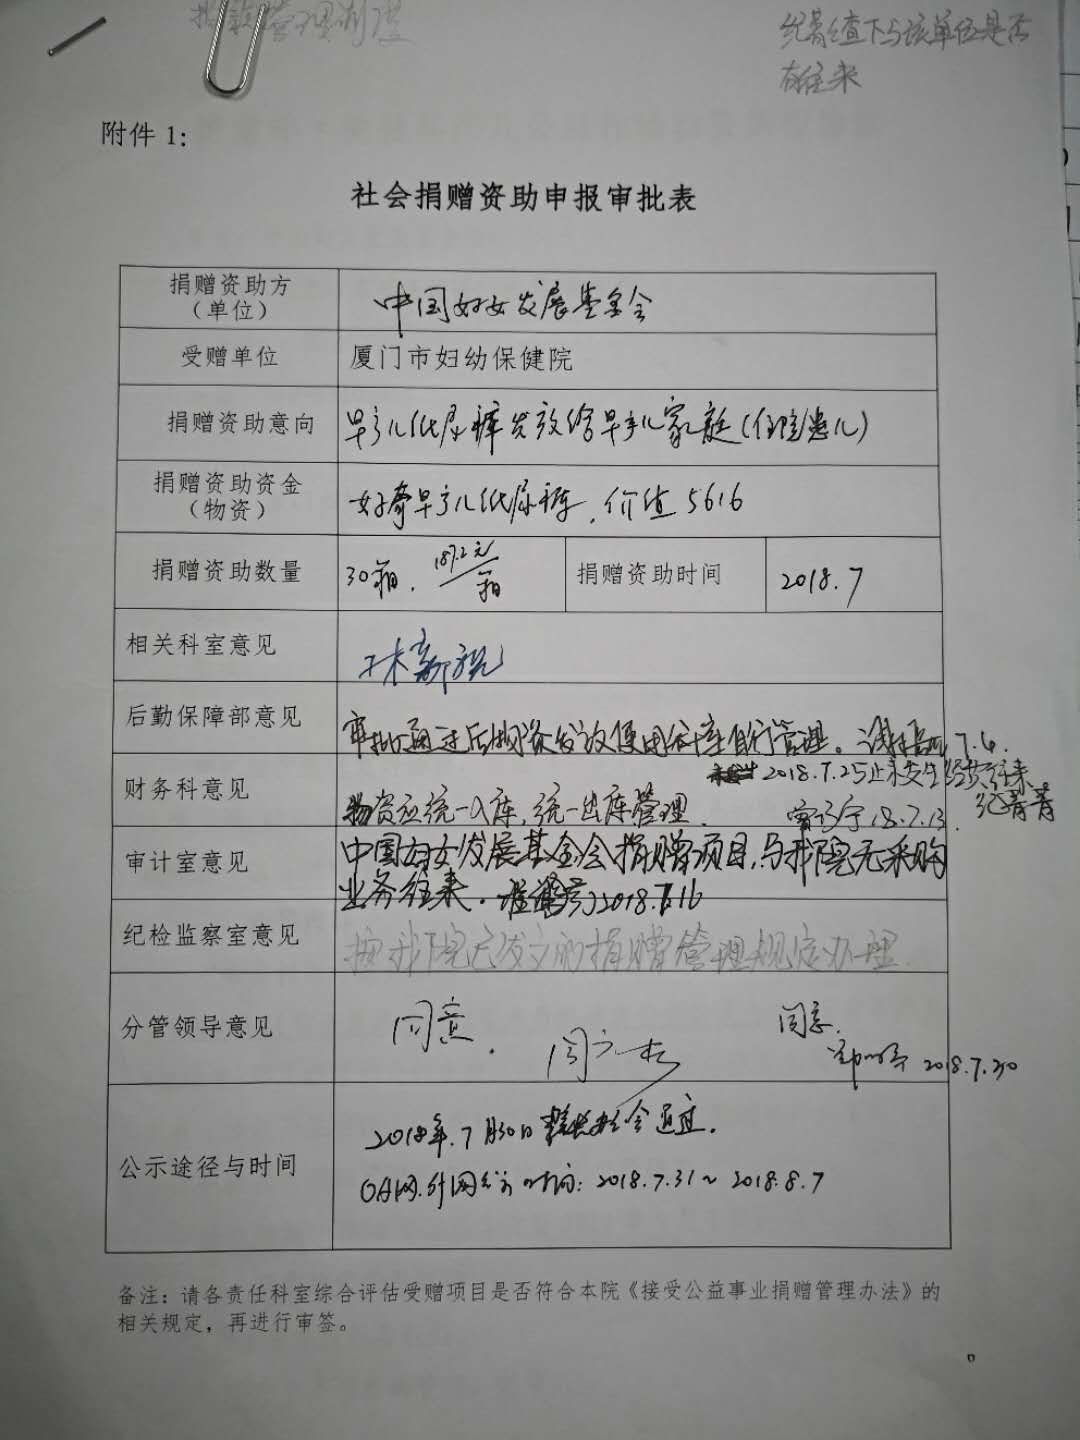 捐款管理制度
纪菁查下与该单位是否
有往来
附件 1:
社会捐赠资助申报审批表
捐赠资助方
（单位）
中国妇女发展基金会
受赠单位
厦门市妇幼保健院
捐赠资助意向
早产儿纸尿裤发放给早产儿家庭(住院患儿)
捐赠资助资金
（物资）
好奇早产儿纸尿裤，价值5616
捐赠资助数量
30箱. 187.2元/箱
捐赠资助时间
2018.7
相关科室意见
林新祝
后勤保障部意见
审批通过后物资发放使用科室自行管理。
7.6.
财务科意见
2018.7.25止未发生经费往来
物资应统一入库，统一出库管理.
18.7.13.
纪菁菁
审计室意见
中国妇女发展基金会捐赠项目，与我院无采购
业务往来。
2018.7.16
纪检监察室意见
按我院已发文的捐赠管理规定办理.
分管领导意见
同意.
同意.
2018.7.30
公示途径与时间
2018年.7月30日 院长办公会通过.
OA网.外网公示 时间: 2018.7.31~2018.8.7
备注：请各责任科室综合评估受赠项目是否符合本院《接受公益事业捐赠管理办法》的
相关规定，再进行审签。